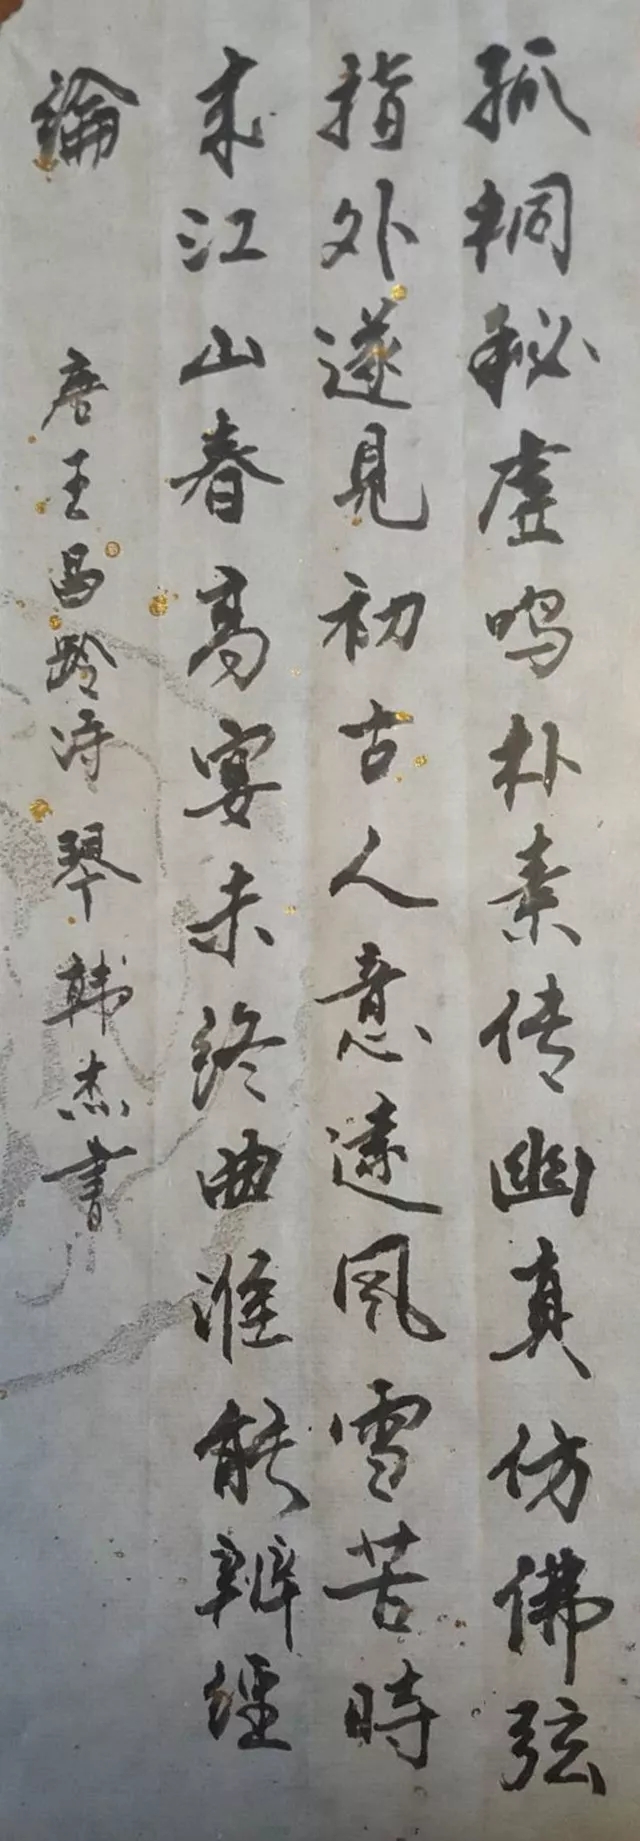 孤桐秘虚鸣朴素传幽真仿佛弦
指外遂见初古人意远风雪苦時
来江山春高宴未终曲谁能辨经
綸
唐王昌龄诗琴韩杰書